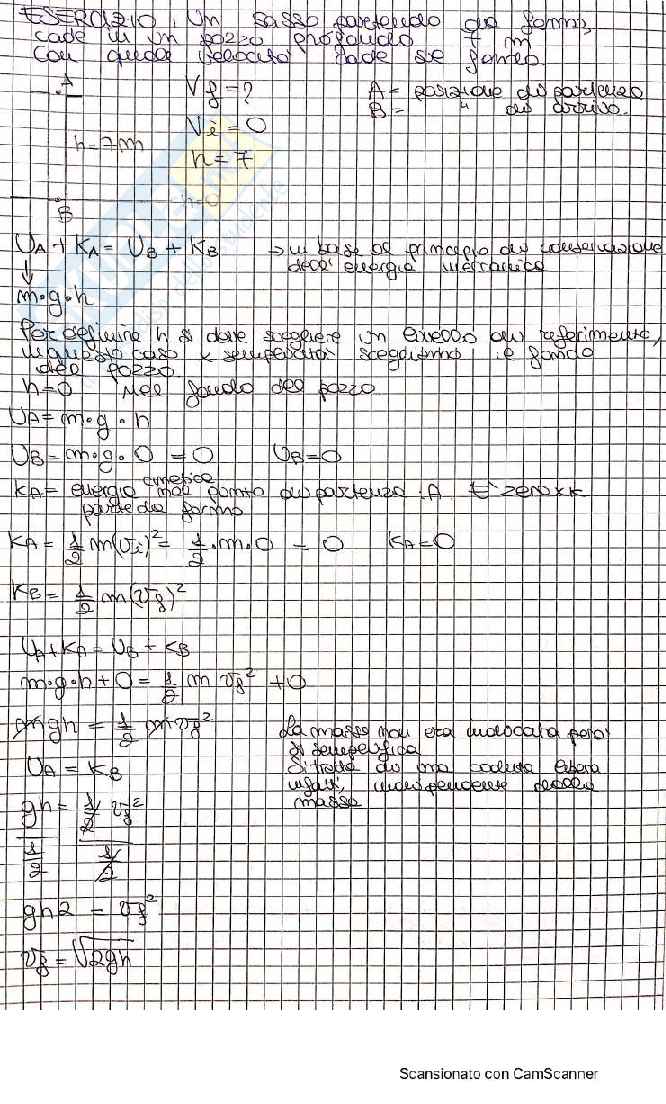 ESERCIZIO. Un sasso partendo da fermo,
cade in un pozzo profondo 7 m
Con quale velocità cade se fermo
A Vf = ? A = posizione di partenza
B = " di arrivo.
Vi = 0
h = 7 m h = 7
h=0
B
UA + KA = UB + KB → in base al principio di conservazione
dell'energia meccanica
m·g·h
Per definire h si deve scegliere un livello di riferimento,
in questo caso x semplicità scegliamo il fondo
del pozzo.
h=0 Nel fondo del pozzo
UA = m·g·h
UB = m·g·0 = 0 UB = 0
KA = energia cinetica nel punto di partenza A. E' zero xk
parte da fermo
KA = 1/2 m(vi)² = 1/2·m·0 = 0 KA = 0
KB = 1/2 m(vf)²
UA + KA = UB + KB
m·g·h + 0 = 1/2 m vf² + 0
mgh = 1/2 m vf² La massa non era indicata però
si semplifica
UA = KB Si tratta di una caduta libera
infatti, indipendente dalla
gh = 1/2 vf² massa
1/2 1/2
gh2 = vf²
vf = √2gh
Scansionato con CamScanner